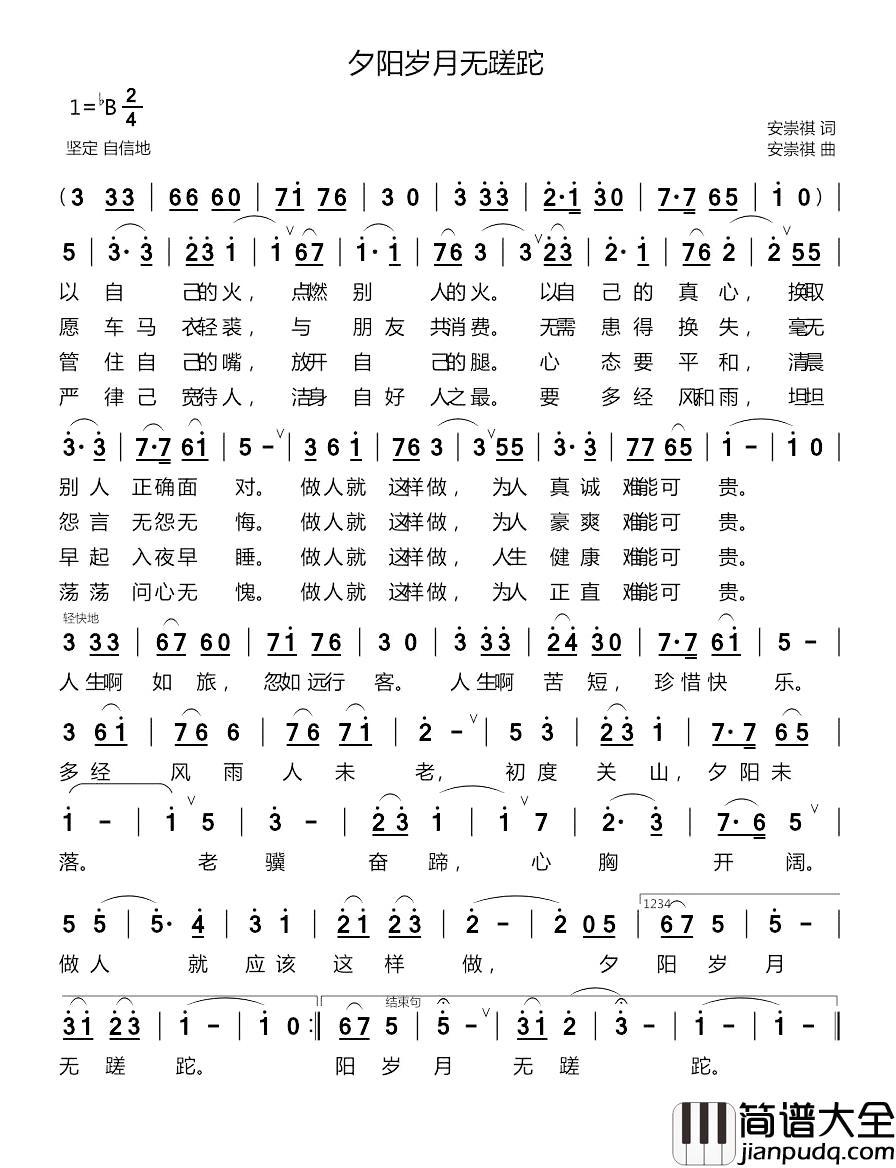 夕阳岁月无蹉跎
1=♭B 2/4
坚定 自信地
安崇祺 词
安崇祺 曲
(3 33 | 66 60 | 71̇ 76 | 3 0 | 3̇ 3̇3̇ | 2̇·1̇ 3̇0 | 7·7 65 | 1̇ 0) |
5 | 3̇·3̇ | 2̇3̇ 1̇ | 1̇ ∨ 67 | 1̇·1̇ | 76 3 | 3 ∨ 2̇3̇ | 2̇·1̇ | 76 2̇ | 2̇ ∨ 55 |
以 自 己的火， 点燃 别 人的火。 以自 己 的 真 心， 换取
愿 车 马 衣轻裘， 与 朋 友 共消费。 无需 患 得 换 失， 毫无
管 住 自 己的嘴， 放开 自 己的腿。 心 态 要 平 和， 清晨
严 律 己 宽待人， 洁身 自 好 人之最。 要 多 经 风和雨， 坦坦
3̇·3̇ | 7·7 61̇ | 5 - ∨ | 3 6 1̇ | 76 3 | 3 ∨ 55 | 3̇·3̇ | 77 65 | 1̇ - | 1̇ 0 |
别 人 正确面 对。 做人就 这样做， 为人 真 诚 难能可 贵。
怨 言 无怨无 悔。 做人就 这样做， 为人 豪 爽 难能可 贵。
早 起 入夜早 睡。 做人就 这样做， 人生 健 康 难能可 贵。
荡 荡 问心无 愧。 做人就 这样做， 为人 正 直 难能可 贵。
轻快地
3 33 | 67 60 | 71̇ 76 | 3 0 | 3̇ 3̇3̇ | 2̇4̇ 3̇0 | 7·7 61̇ | 5 - |
人生啊 如 旅， 忽如 远行 客。 人生啊 苦 短， 珍惜快 乐。
3 61̇ | 76 6 | 76 71̇ | 2̇ - ∨ | 5 3̇ | 2̇3̇ 1̇ | 7·7 65 |
多 经 风 雨 人 未 老， 初 度 关 山， 夕阳未
1̇ - | 1̇ ∨ 5 | 3̇ - | 2̇3̇ 1̇ | 1̇ ∨ 7 | 2̇· 3̇ | 7·6 5 ∨ |
落。 老 骥 奋 蹄， 心 胸 开 阔。
5 5̇ | 5̇· 4̇ | 3̇ 1̇ | 2̇1̇ 2̇3̇ | 2̇ - | 2̇ 05 | 1234 67 5 | 5 5 |
做 人 就 应 该 这 样 做， 夕 阳 岁 月
3̇1̇ 2̇3̇ | 1̇ - | 1̇ 0 :‖ 结束句 67 5 | 5̇ - ∨ | 3̇1̇ 2̇ | 3̇ - | 1̇ - | 1̇ - ‖
无 蹉 跎。 阳 岁 月 无 蹉 跎。
简谱大全
jianpudq.com